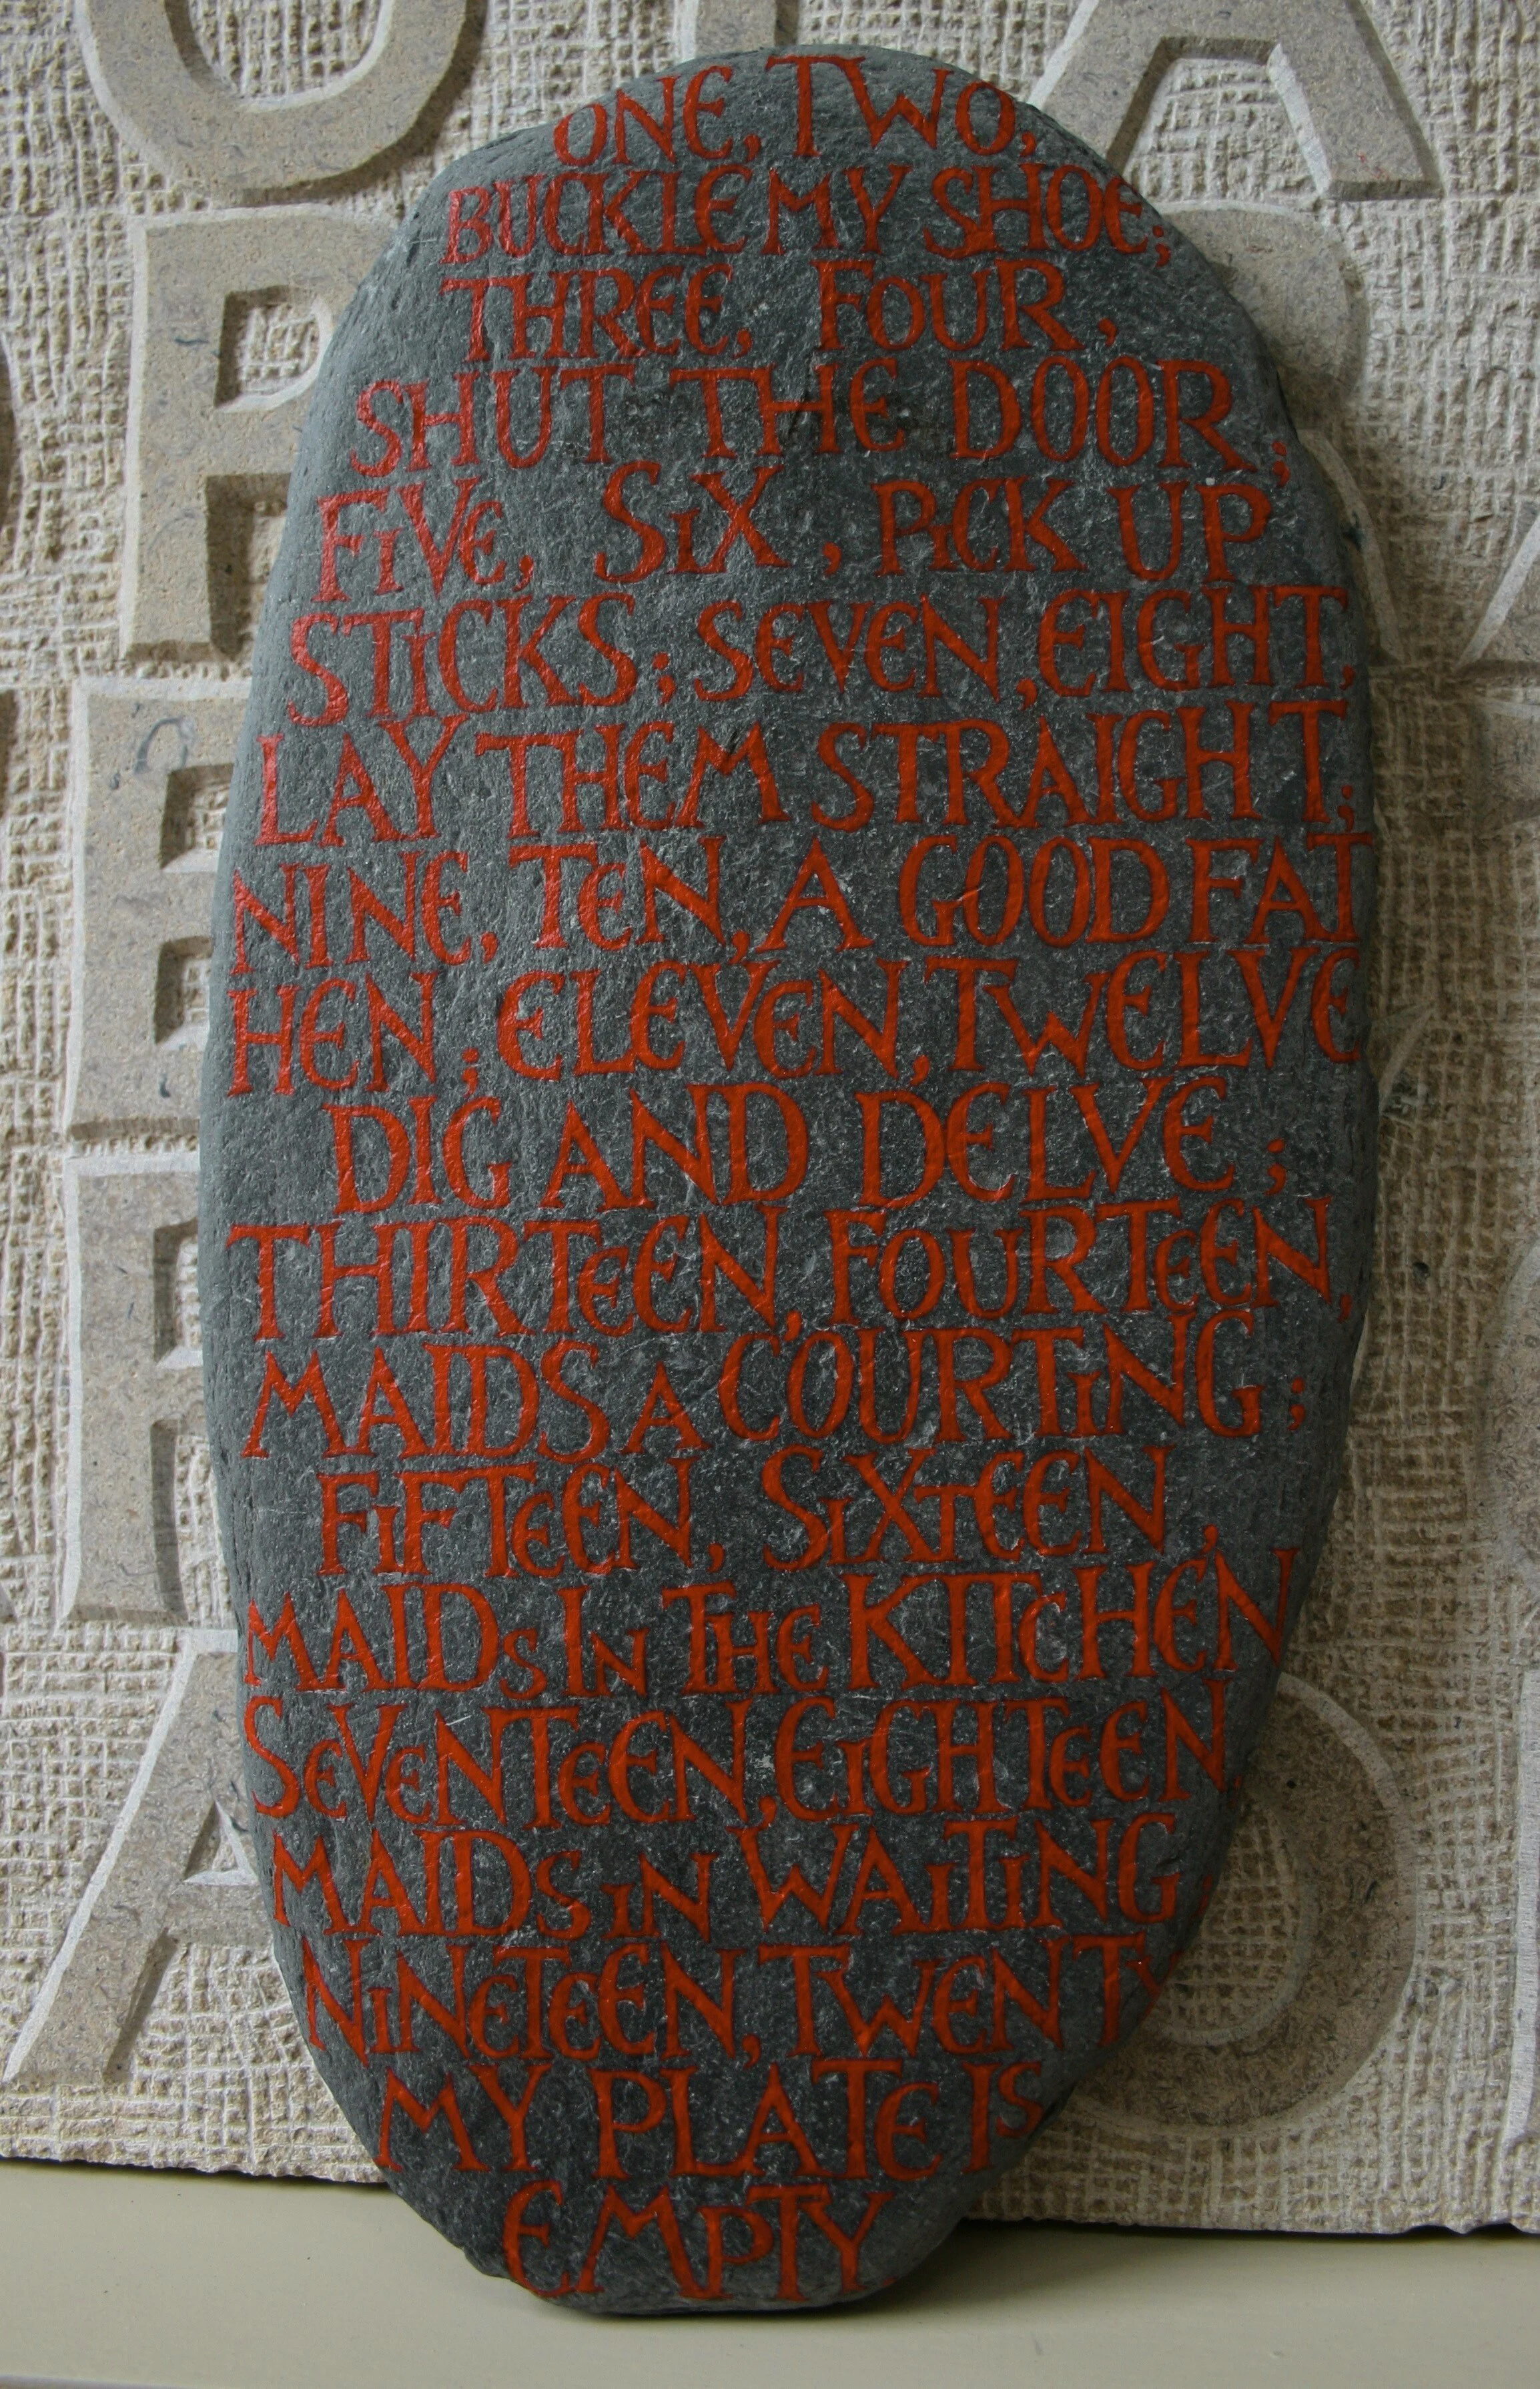 ONE, TWO,
BUCKLE MY SHOE;
THREE, FOUR,
SHUT THE DOOR;
FIVE, SIX, PICK UP
STICKS; SEVEN, EIGHT,
LAY THEM STRAIGHT;
NINE, TEN, A GOOD FAT
HEN; ELEVEN, TWELVE
DIG AND DELVE;
THIRTEEN, FOURTEEN,
MAIDS A COURTING;
FIFTEEN, SIXTEEN,
MAIDS IN THE KITCHEN
SEVENTEEN, EIGHTEEN,
MAIDS IN WAITING;
NINETEEN, TWENTY
MY PLATE IS
EMPTY.